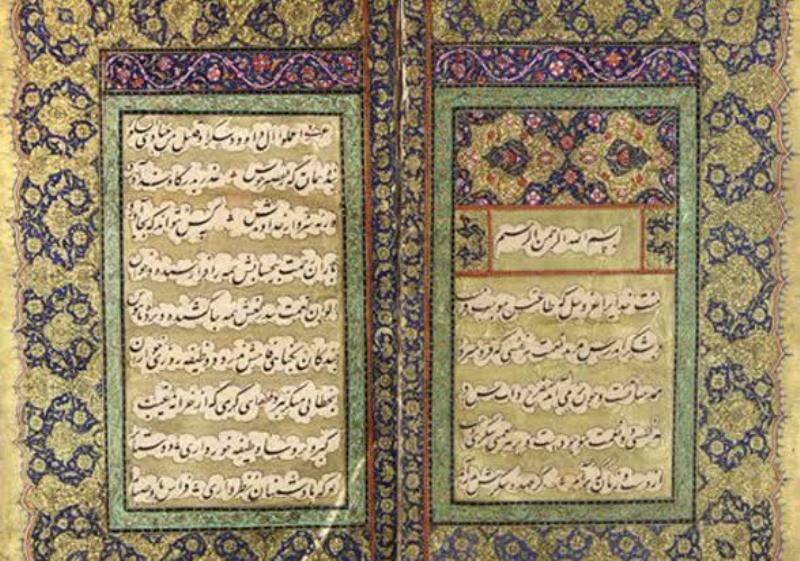 بسم الله الرحمن الرحیم
منت خدایرا عز و جل که طاعتش موجب قربت
و بشکر اندرش مزید نعمت هر نفسی که فرو میرود
ممد حیاتست و چون برمی آید مفرح ذات پس در
هر نفسی دو نعمت موجودست و بر هر نعمتی شکری
از دست و زبان که برآید کز عهده شکرش بدرآید
اعملوا آل داود شکرا و قلیل من عبادی الشکور
بنده همان که ز تقصیر خویش عذر بدرگاه خدا آورد
ورنه سزاوار خداوندیش کس نتواند که بجا آورد
باران رحمت بیحسابش همه را رسیده و خوان
الوان نعمت بیدریغش همه جا کشیده و پرده ناموس
بندگان بگناه فاحش ندرد و وظیفه روزی خواران
بخطای منکر نبرد ای کریمی که از خزانه غیب
گبر و ترسا وظیفه خور داری دوستان
تو که با دشمنان نظر داری فراش باد صبا